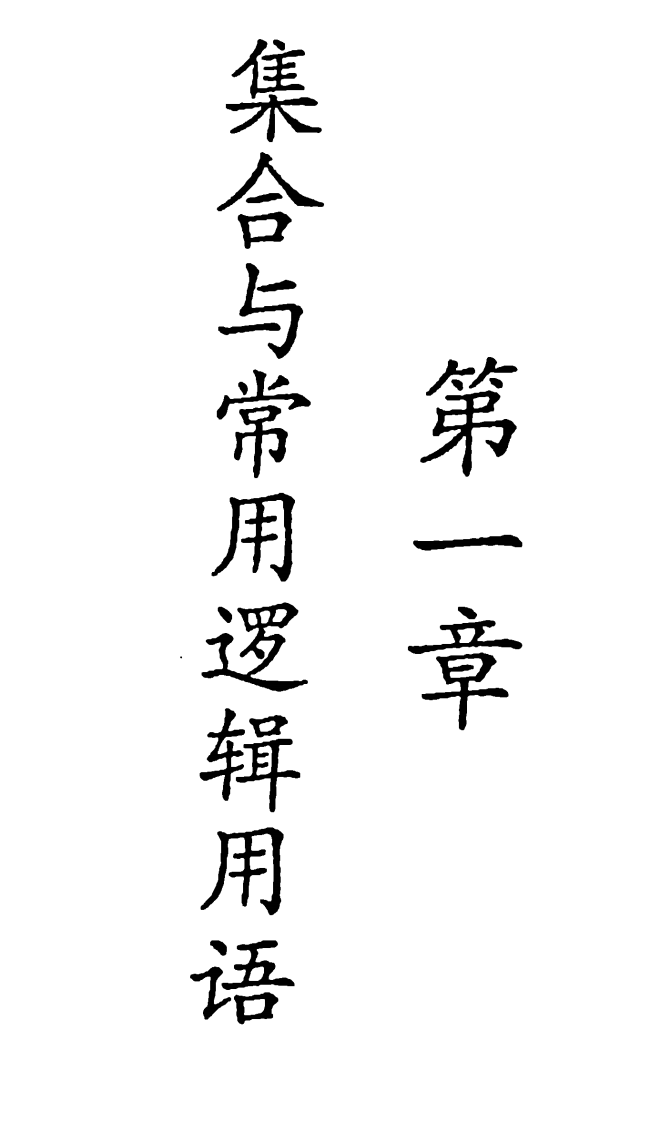 第一章
集合与常用逻辑用语